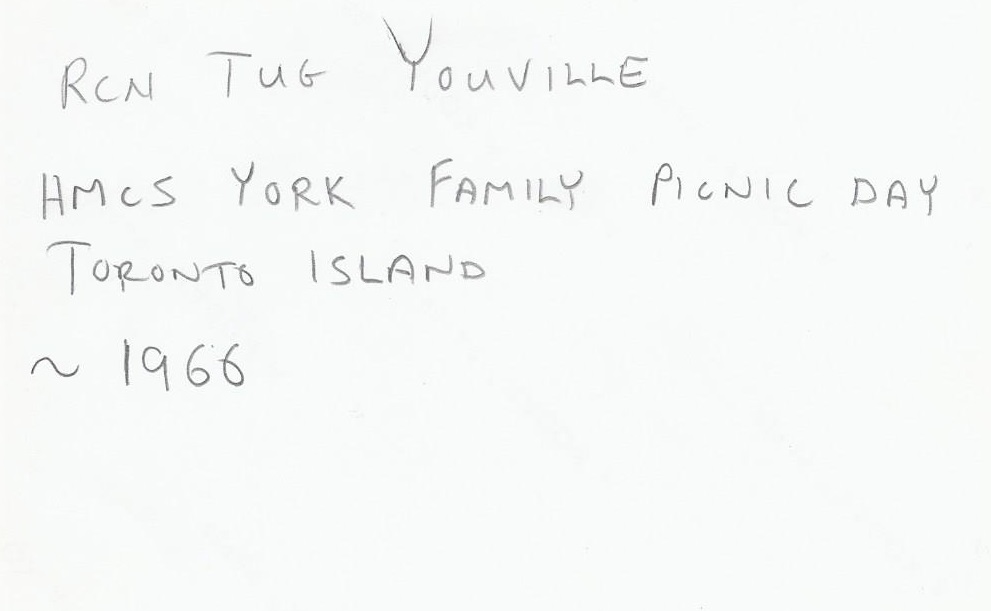 RCN TUG YOUVILLE
HMCS YORK FAMILY PICNIC DAY
TORONTO ISLAND
~ 1966